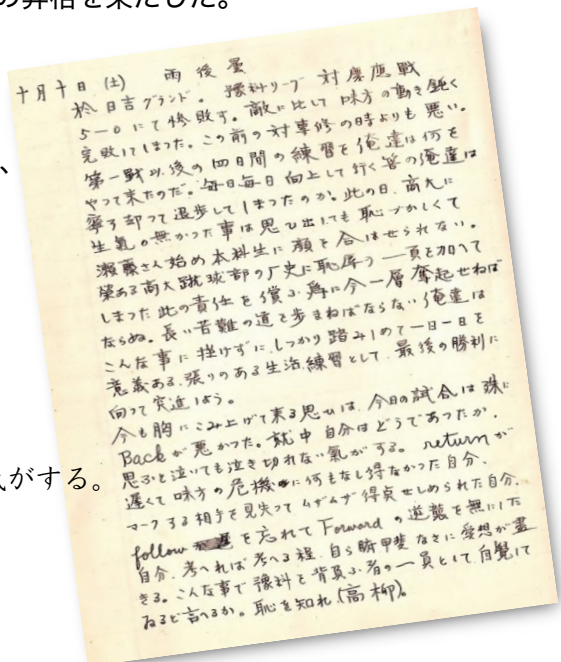 の昇格を果たした。
、
がする。
十月十日(土) 雨後曇
於日吉グランド。豫科リーブ 対慶應戦
5-0にて惨敗す。敵に比して味方の動き鈍く
完敗してしまつた。この前の対専修の時よりも悪い。
第一戦以後の四日間の練習を俺達は何を
やつて来たのだ。毎日毎日向上して行く筈の俺達は
寧ろ却つて退歩してしまつたのか。此の日、商大に
生氣の無かつた事は思ひ出しても恥づかしくて
瀬藤さん始め本科生に顔を合はせられない。
榮ある商大蹴球部の歴史に恥辱の一頁を加へて
しまつた此の責任を償ふ為に今一層奮起せねば
ならぬ。長い苦難の道を歩まねばならない俺達は
こんな事に挫けずに、しつかり踏みしめて一日一日を
意義ある、張りのある生活、練習として、最後の勝利に
向つて突進しよう。
今も胸にこみ上げて来る思ひは、今日の試合は殊に
Backが悪かつた。就中自分はどうであつたか。
思ふと泣いても泣き切れない氣がする。returnが
遅くて味方の危機に何もなし得なかつた自分、
マークする相手を見失つてムザムザ得点せしめられた自分、
followを忘れてForwardの逆襲を無にした
自分、考へれば考へる程、自ら腑甲斐なさに愛想が盡
きる。こんな事で豫科を背負ふ者の一員として自覺して
ゐると言へるか。恥を知れ(高柳)。